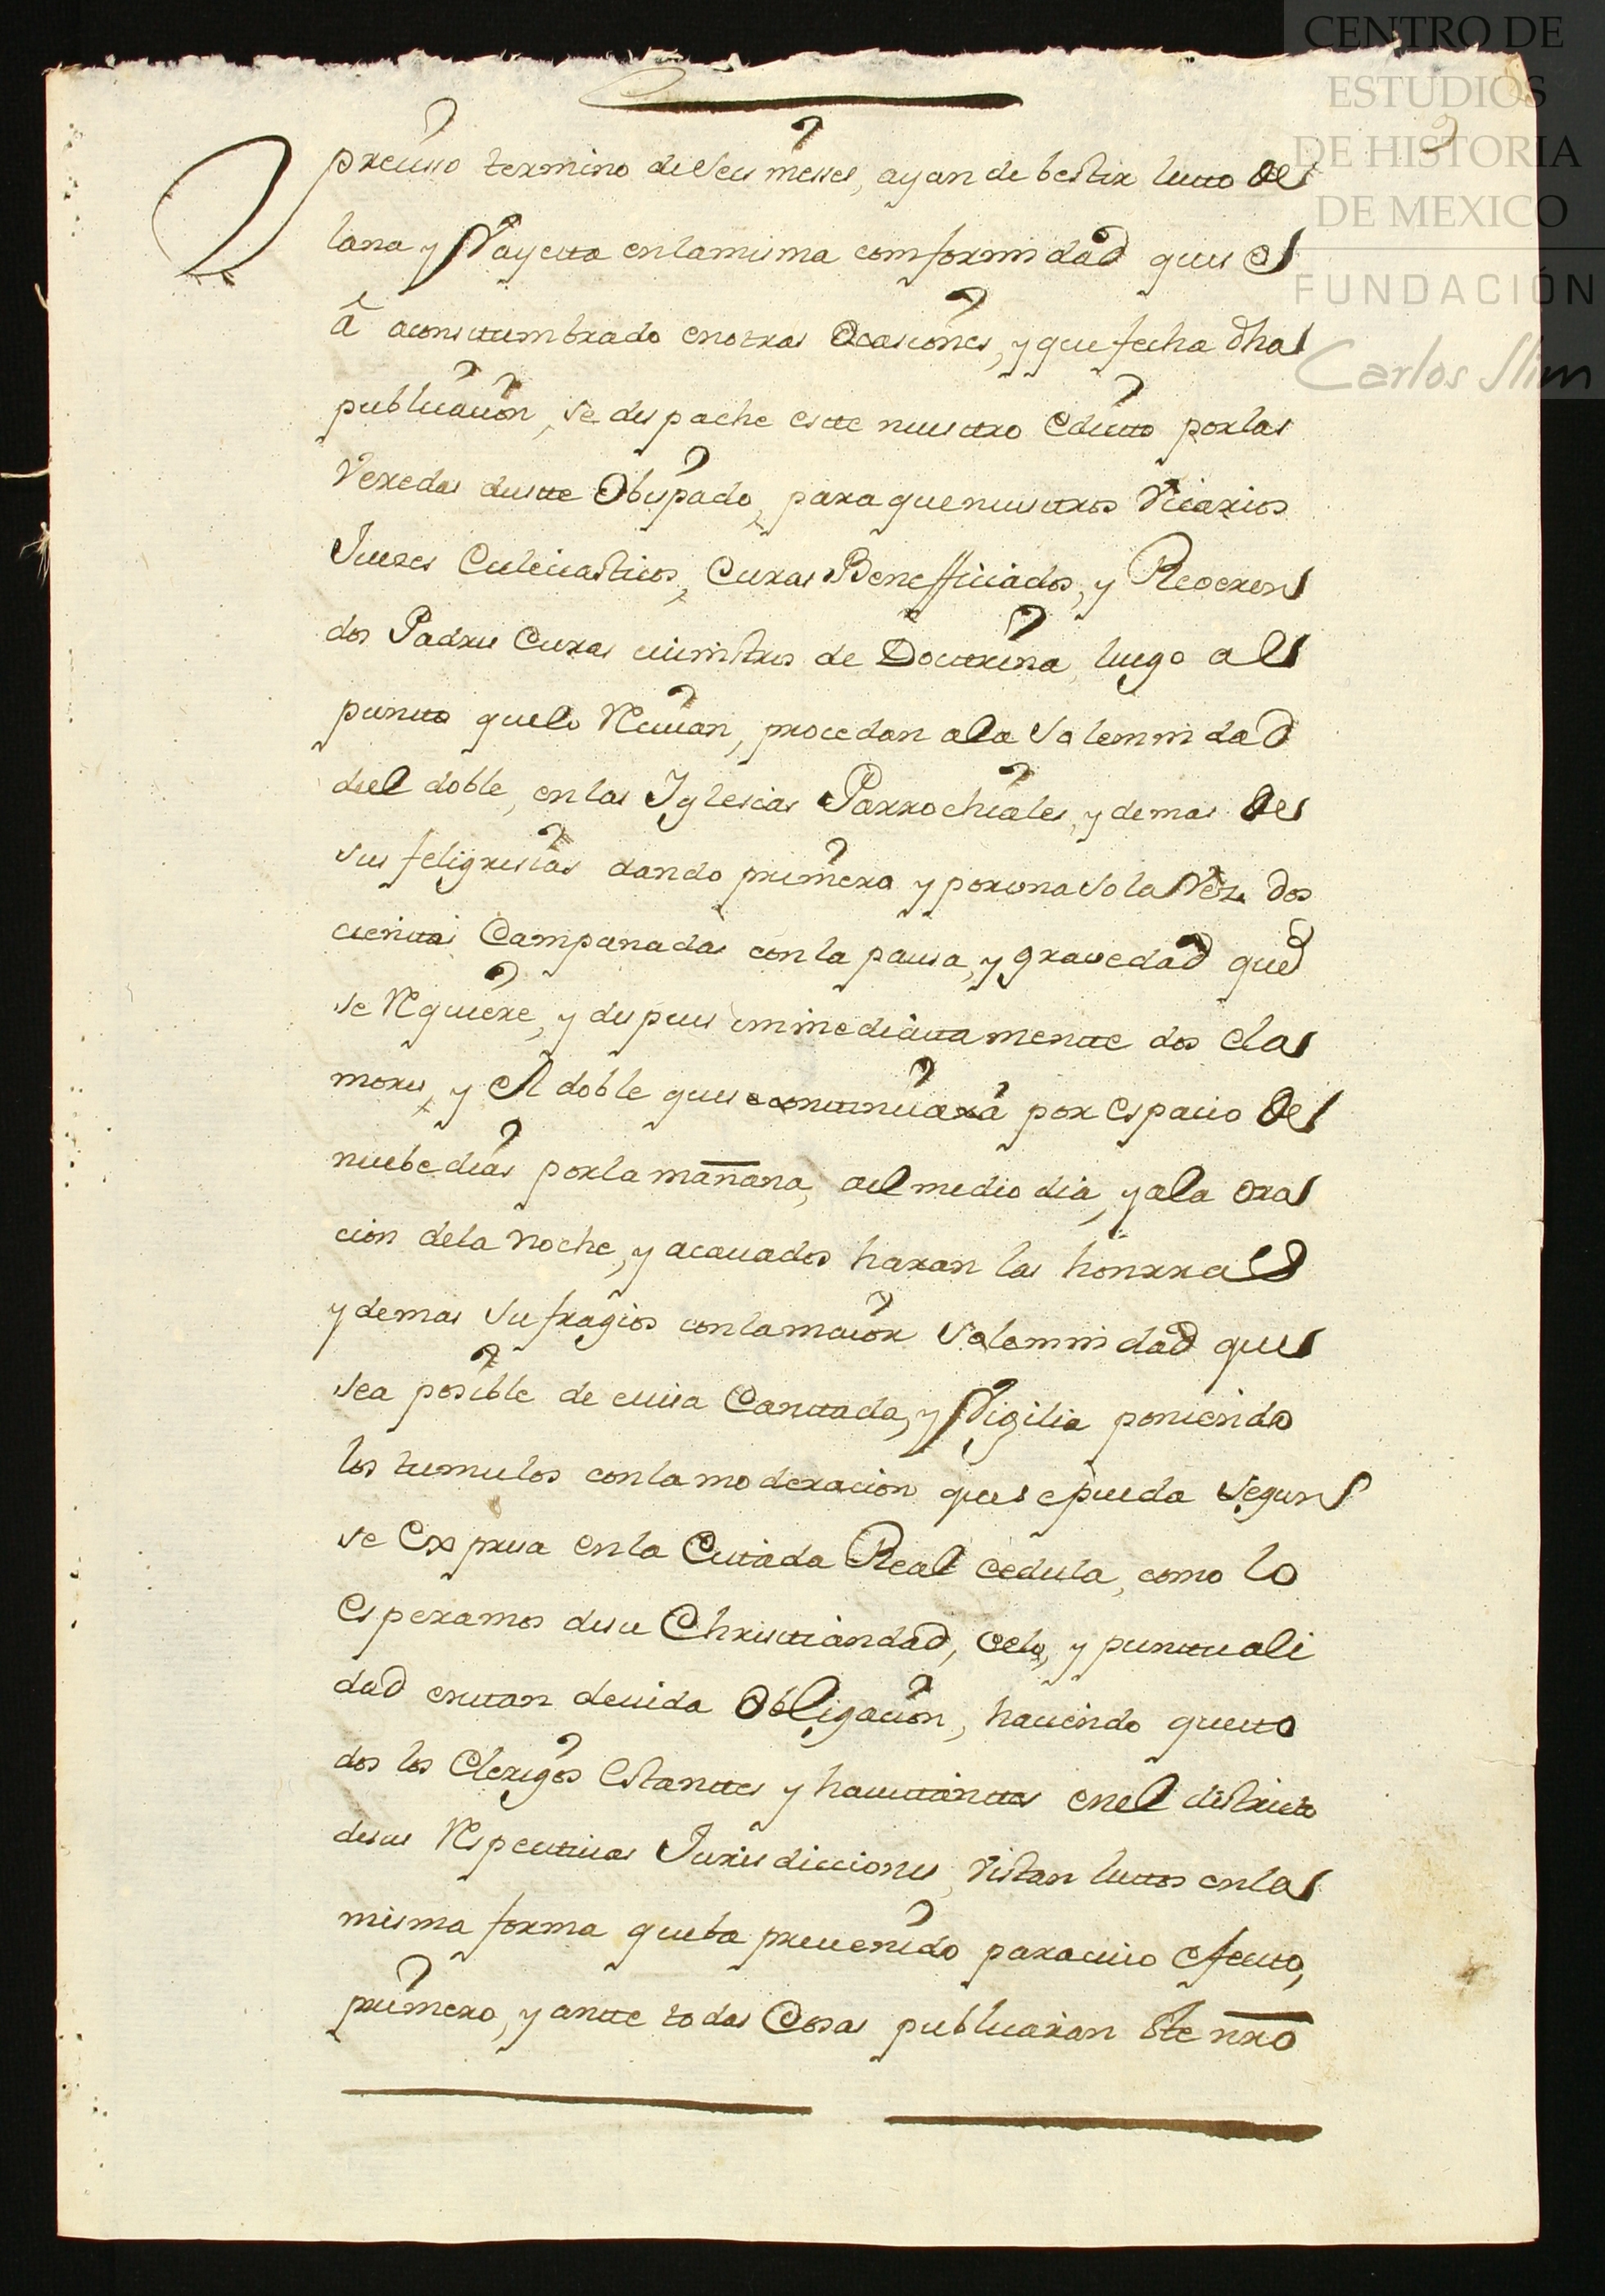 CENTRO DE
ESTUDIOS
DE HISTORIA
DE MEXICO
FUNDACIÓN
Carlos Slim
preciso termino de seis meses, ayan de bestir luto de
lana y Vayeta en la misma comformidad que se
â acostumbrado en otras Ocasiones, y que fecha dha
publicación, se despache este nuestro Edicto por las
Veredas deste Obispado, para que nuestros Vicarios
Juezes Eclesiasticos, Curas Benefficiados, y Reveren
dos Padres Curas ministros de Doctrina, luego al
punto que lo Reciuan, procedan a la solemnidad
del doble, en las Iglesias Parrochiales, y demas de
sus feligresias dando primera y por una sola Vez dos
cientas Campanadas con la pausa, y gravedad que
se Requiere, y despues immediatamente dos cla
mores, y el doble que se continuará por espacio de
nuebe dias por la mañana, al medio dia, y a la ora
cion de la noche, y acauados haran las honrras
y demas sufragios con la maior solemnidad que
sea posible de missa Cantada, y Vigilia poniendo
los tumulos con la moderacion que se pueda segun
se Expresa en la Citada Real cedula, como lo
Esperamos de su Christiandad, celo, y puntuali
dad en tan deuida Obligación, haciendo que to
dos los Clerigos Estantes y hauitantes en el districto
de sus Respectiuas Jurisdicciones, Vistan lutos en la
misma forma que ba preuenido para cuio efecto,
primero, y ante todas Cosas publicaran Este nro